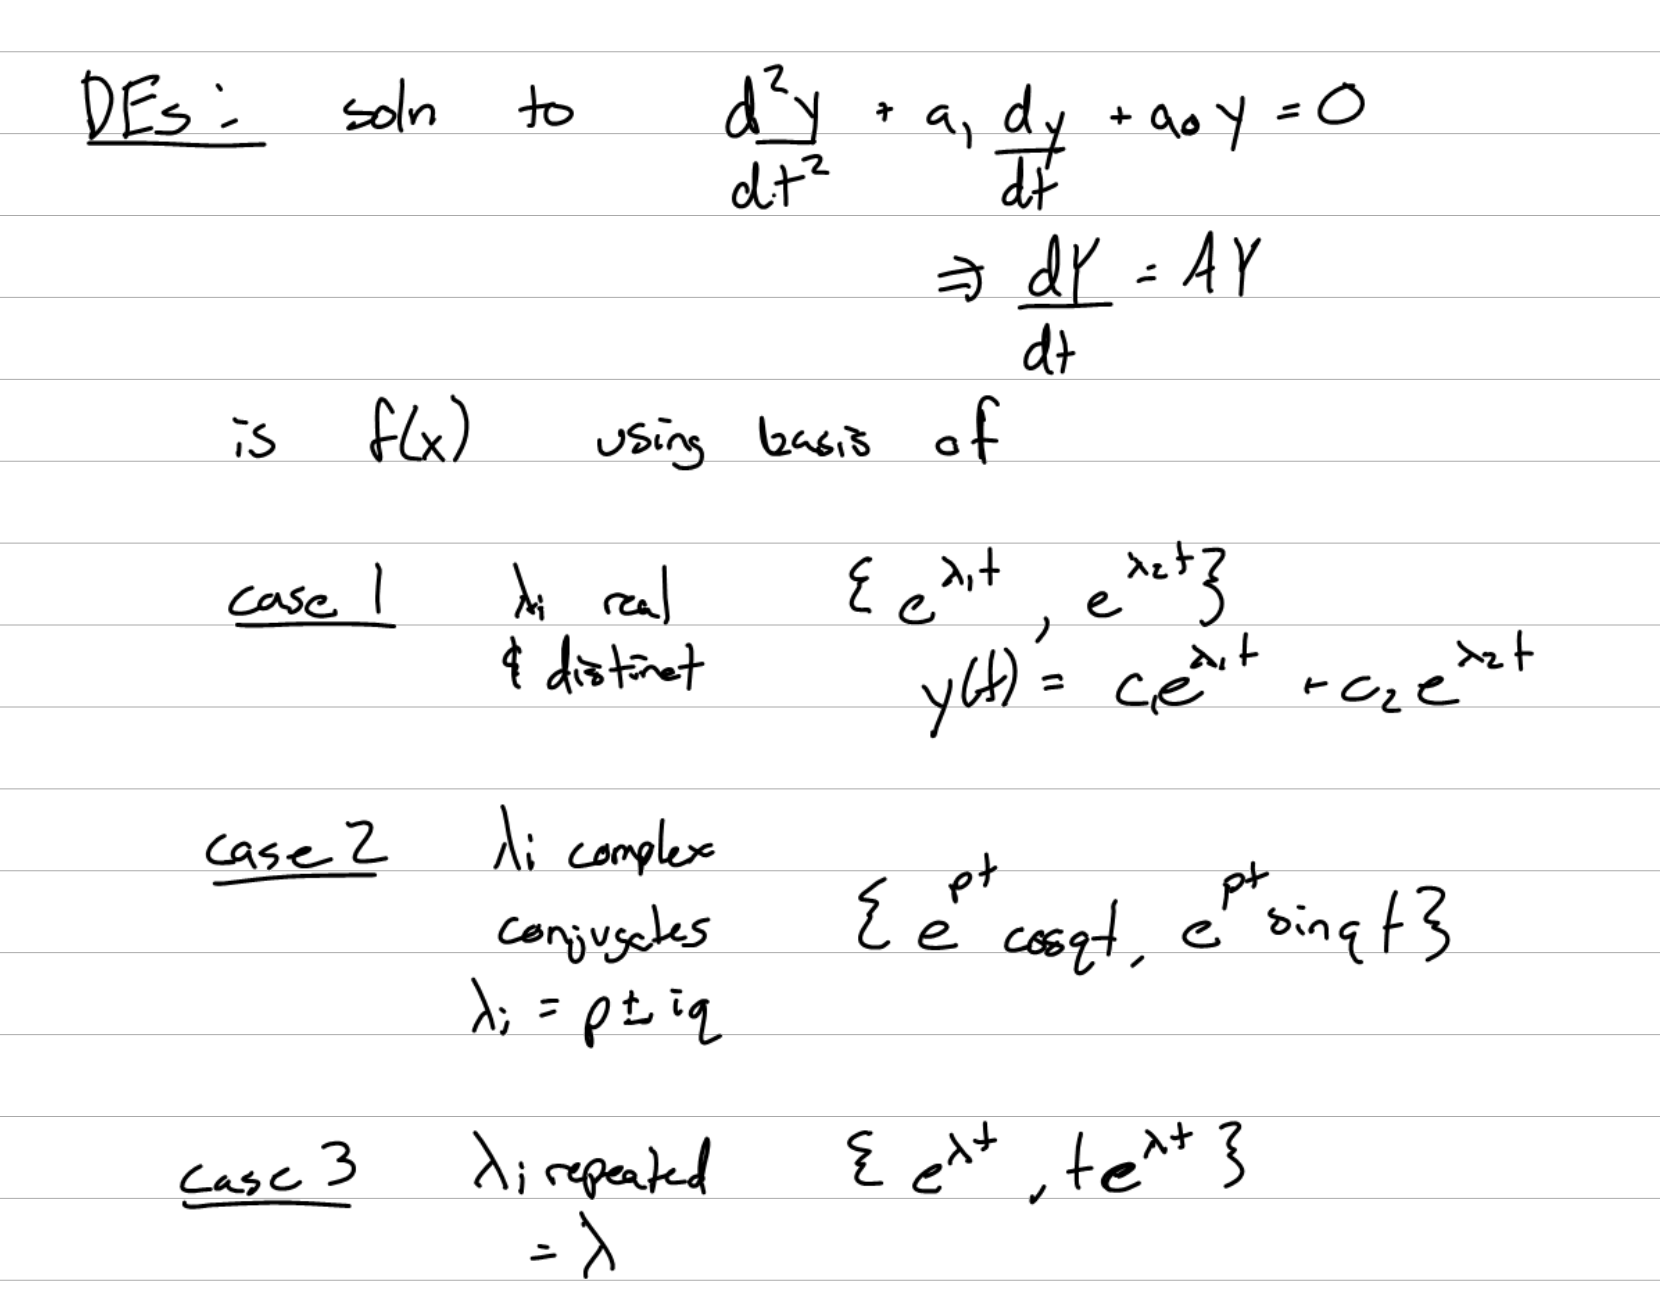 DEs: soln to d²y/dt² + a₁ dy/dt + a₀ y = 0
⇒ dY/dt = AY
is f(x) using basis of
case 1 λᵢ real { e^{λ₁t} , e^{λ₂t} }
& distinct y(t) = c₁e^{λ₁t} + c₂e^{λ₂t}
case 2 λᵢ complex
conjugates { e^{pt} cosqt, e^{pt} sinqt }
λᵢ = p ± iq
case 3 λᵢ repeated { e^{λt} , te^{λt} }
= λ